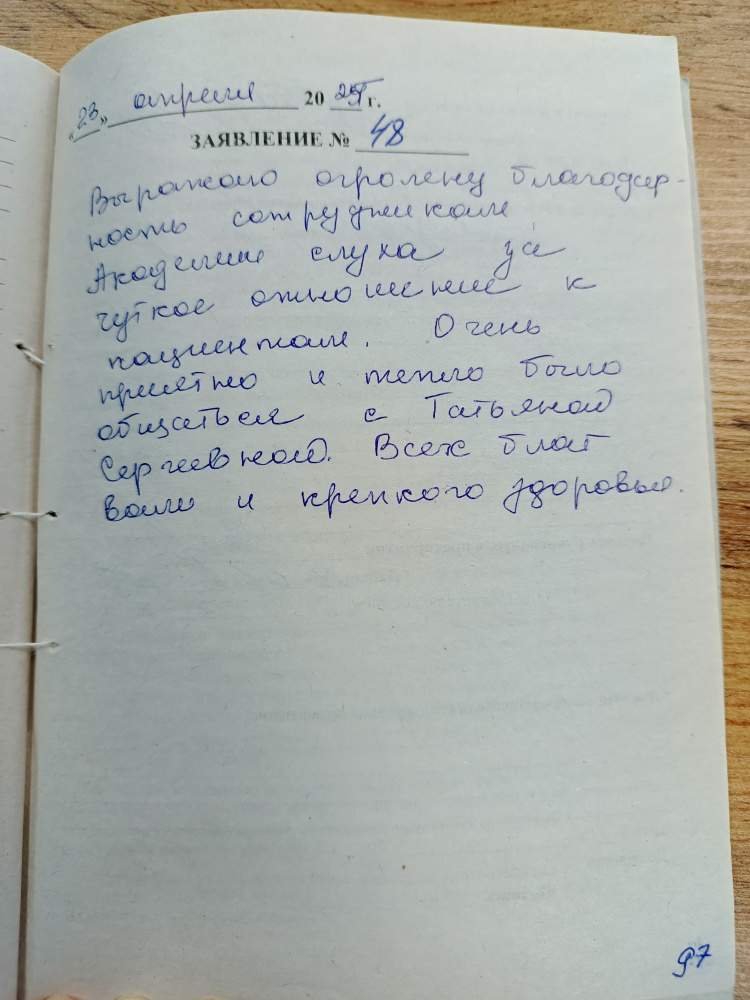 «23» апреля 2025 г.
ЗАЯВЛЕНИЕ № 48
Выражаю огромену благодар-
ность сотрудникам
Академии слуха за
чуткое отношение к
пациентам. Очень
приятно и тепло было
общаться с Татьяной
Сергеевной. Всех благ
вам и крепкого здоровья.
97